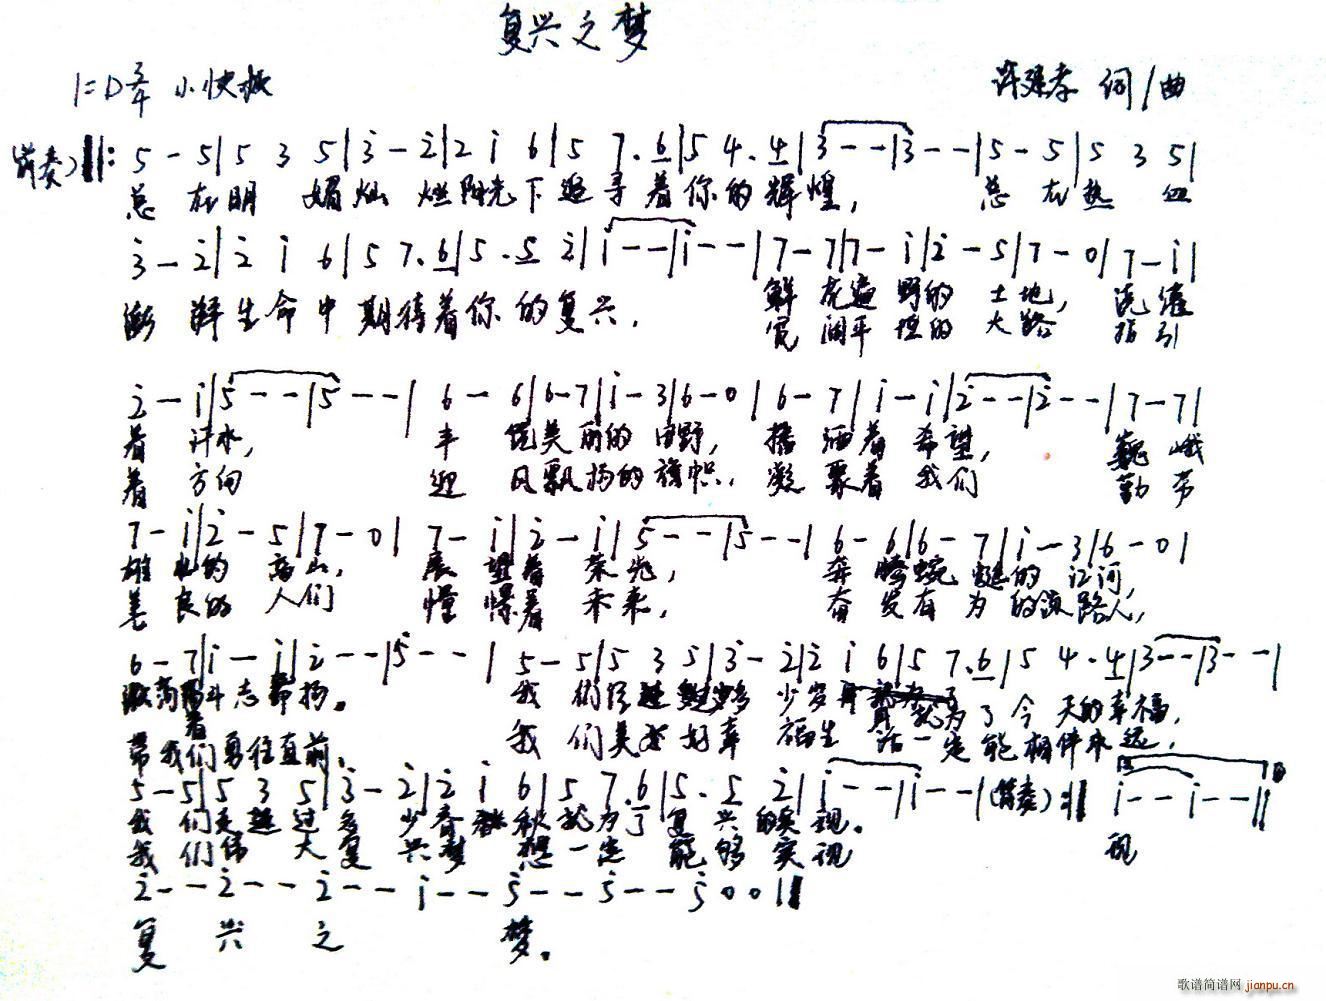 复兴之梦
1=D 3/4 小快板 许建孝 词/曲
(前奏)‖: 5 - 5|5 3 5|3̇ - 2̇|2̇ i 6|5 7.6|5 4.4|3 - -|3 - -|5 - 5|5 3 5|
总在明媚灿烂阳光下追寻着你的辉煌, 总在热血
3̇ - 2̇|2̇ i 6|5 7.6|5.5 2̇|i - -|i - -|7 - 7|7 - i|2̇ - 5|7 - 0|7 - i|
澎湃生命中期待着你的复兴. 鲜花遍野的土地, 浇灌
宽阔平坦的大路 指引
2̇ - i|5 - -|5 - -|6 - 6|6 - 7|i - 3|6 - 0|6 - 7|i - i|2̇ - -|2̇ - -|7 - 7|
着汗水, 丰优美丽的田野, 播洒着希望, 巍峨
着方向 迎风飘扬的旗帜, 凝聚着我们 勤劳
7 - i|2̇ - 5|7 - 0|7 - i|2̇ - i|5 - -|5 - -|6 - 6|6 - 7|i - 3|6 - 0|
雄壮的高山, 展望着荣光, 奔腾蜿蜒的江河,
善良的人们 憧憬着未来, 奋发有为的领路人,
6 - 7|i - i|2̇ - -|5 - -|5 - 5|5 3 5|3̇ - 2̇|2̇ i 6|5 7.6|5 4.4|3 - -|3 - -|
斗志昂扬. 我们经 多少岁月 就为了今天的幸福,
带着我们勇往直前, 我们美好幸福生活一定能相伴永远,
5 - 5|5 3 5|3̇ - 2̇|2̇ i 6|5 7.6|5.5 2̇|i - -|i - -|(前奏):‖ i - - i - -‖
我们走过多少春秋就为了复兴的实现.
我们伟大复兴梦想一定能够实现 现
2̇ - - 2̇ - - 2̇ - - i - - 5̇ - - 5̇ - - 5̇ 0 0‖
复兴之梦.
歌谱简谱网 jianpu.cn